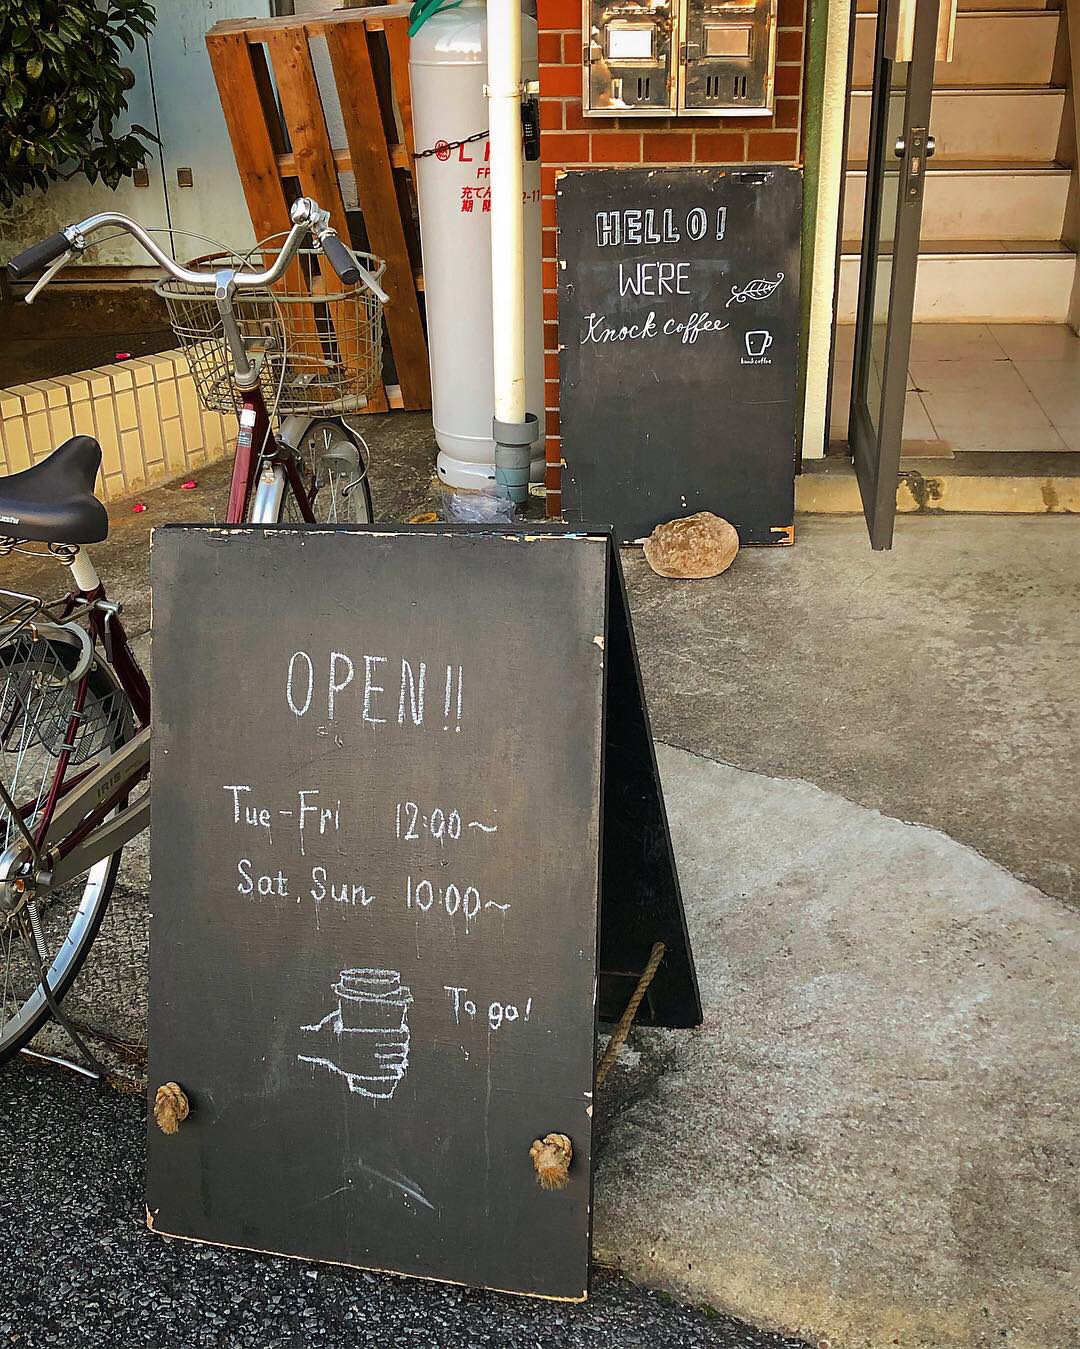 HELLO!
WE'RE
Knock coffee
knock coffee
充てん
期限
OPEN!!
Tue-Fri 12:00~
Sat, Sun 10:00~
To go!
IRIS